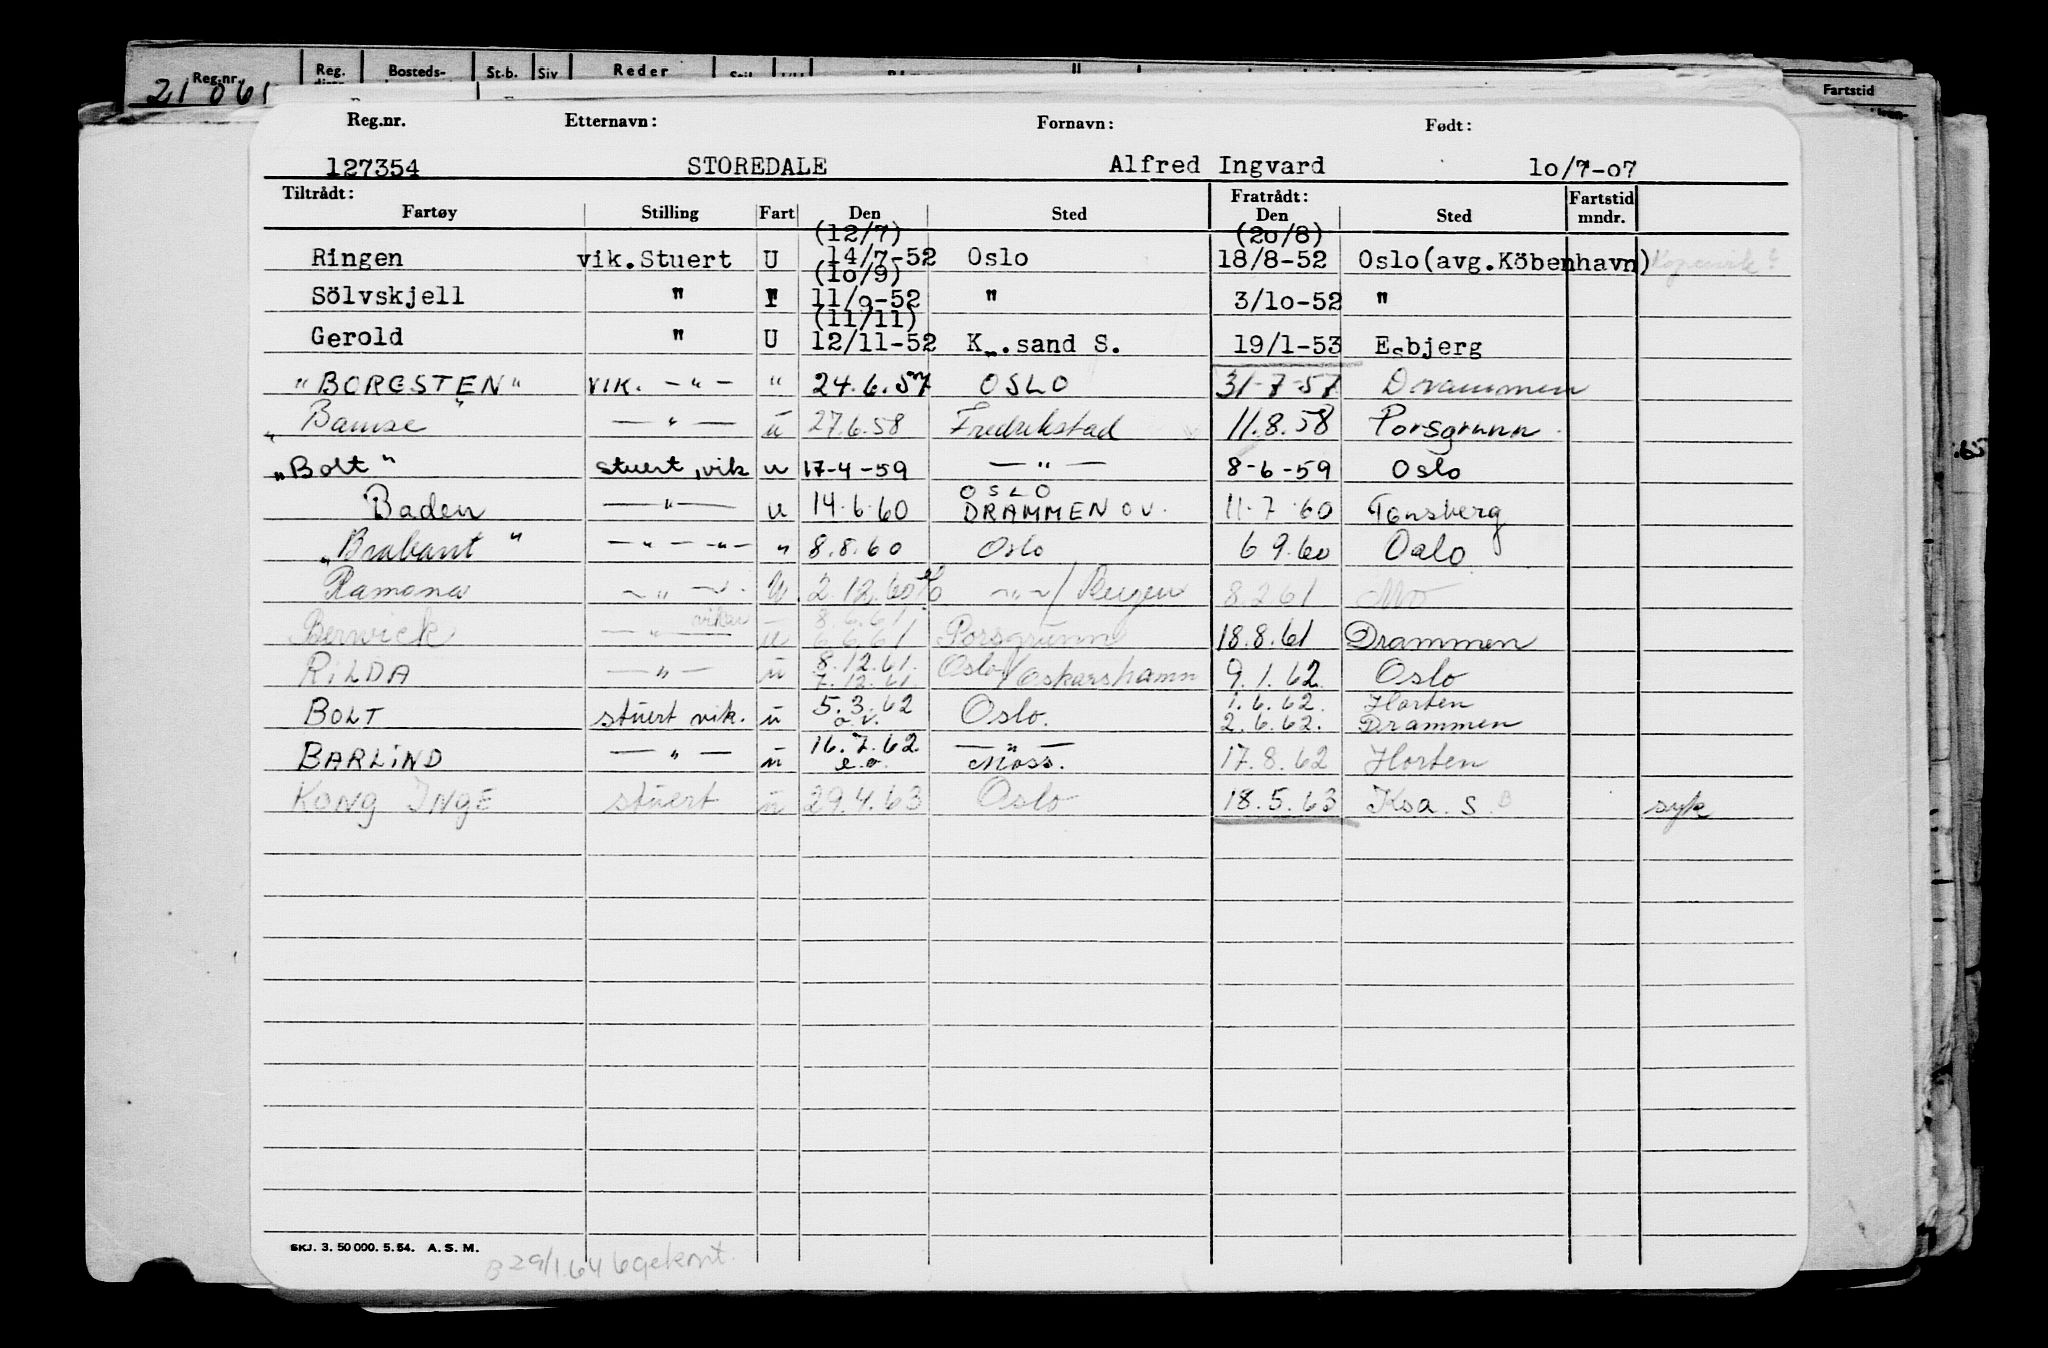 Reg.nr. Reg. Bosteds- St.b. Siv Reder Fartstid
21 061
Reg.nr. Etternavn: Fornavn: Født:
127354 STOREDALE Alfred Ingvard 10/7-07
Tiltrådt: Fratrådt: Fartstid
Fartøy Stilling Fart Den Sted Den Sted mndr.
(12/7) (20/8)
Ringen vik.Stuert U 14/7-52 Oslo 18/8-52 Oslo(avg.Köbenhavn)
(10/9)
Sölvskjell " 11/9-52 " 3/10-52 "
(11/11)
Gerold " U 12/11-52 K .sand S. 19/1-53 Esbjerg
"BORGSTEN" VIK. — " — " 24.6.57 OSLO 31-7-57 Drammen
"Bamse" — " — u 27.6.58 Fredrikstad 11.8.58 Porsgrunn
"Bolt" stuert, vik u 17-4-59 — " — 8-6-59 Oslo
OSLO
Baden — " — u 14.6.60 DRAMMEN O V. 11.7.60 Tønsberg
"Brabant" — " — " — " 8.8.60 Oslo 6 9.60 Oslo
Ramona — " — U 2.12.60 — " — / 8.2 61 Mo
vikar 8.6.61
Berwick — " — u 6.6.61 Porsgrunn 18.8.61 Drammen
8.12.61
RILDA — " — u 7.12.61 Oslo/Oskarshamn 9.1.62 Oslo
5.3.62 1.6.62. Horten
BOLT stuert vik. u o.v. Oslo. 2.6.62. Drammen
16.7.62 — " —
BARLIND — " — u e.o. Moss. 17.8.62 Horten
KONG INGE stuert u 29.4.63 Oslo 18.5.63 Ksa. S syk
SKJ. 3. 50 000. 5.54. A. S. M.
B 29/1.64